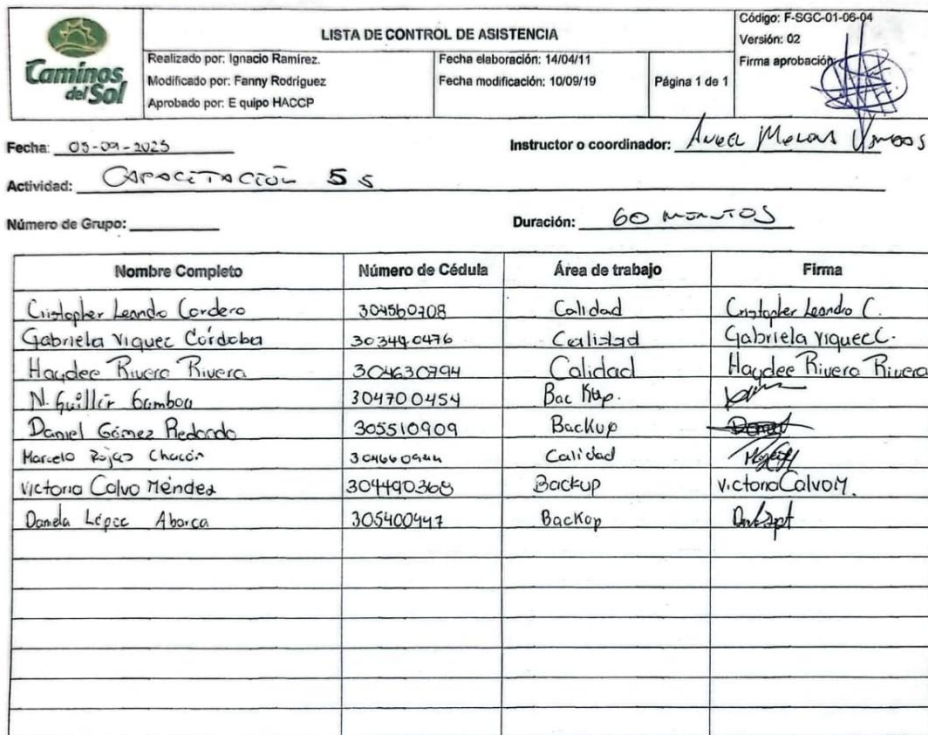 Caminos
del Sol
LISTA DE CONTROL DE ASISTENCIA
Realizado por: Ignacio Ramírez.
Modificado por: Fanny Rodríguez
Aprobado por: E quipo HACCP
Fecha elaboración: 14/04/11
Fecha modificación: 10/09/19
Página 1 de 1
Código: F-SGC-01-06-04
Versión: 02
Firma aprobación
Fecha: 05-09-2023
Instructor o coordinador: Angel
Actividad: CAPACITACIÓN 5 S
Número de Grupo:
Duración: 60 MINUTOS
Nombre Completo Número de Cédula Área de trabajo Firma
Cristopher Leandro Cordero 304560708 Calidad Cristopher Leandro C.
Gabriela Viquez Córdoba 303490476 Calidad Gabriela Viquez C.
Haydee Rivera Rivera 304630794 Calidad Haydee Rivera Rivera
N. Guillér Gamboa 304700454 Backup.
Daniel Gómez Redondo 305510909 Backup
Marcelo Rojas Chacón 304660944 Calidad
Victoria Calvo Méndez 304490368 Backup Victoria Calvo M.
Daniela López Abarca 305400447 Backup